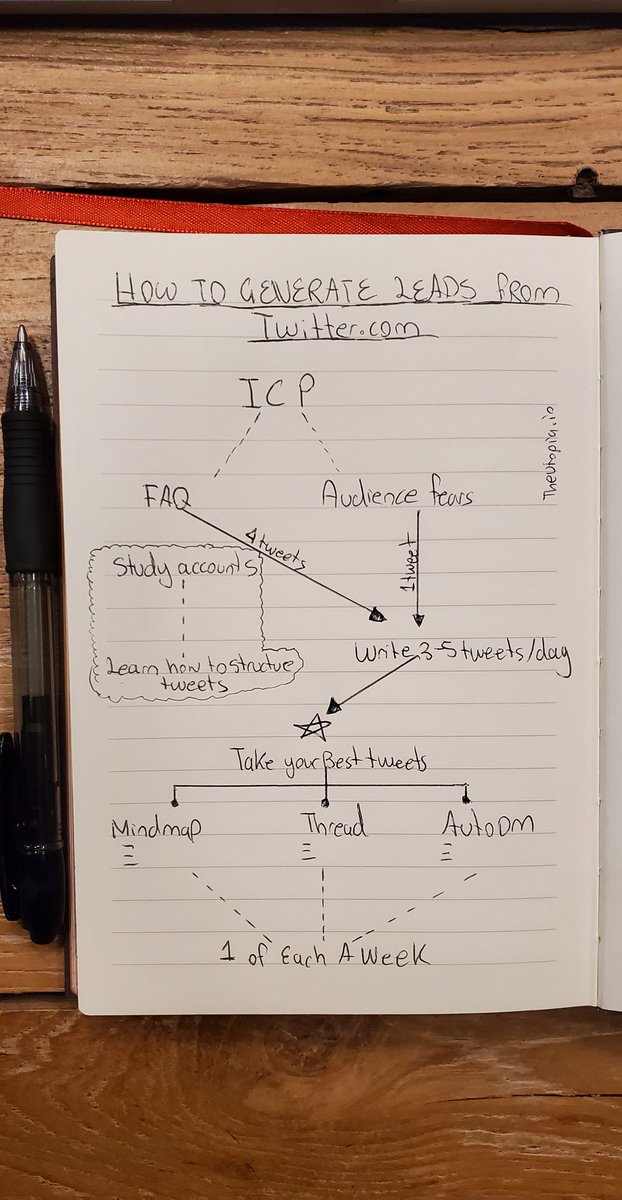 HOW TO GENERATE LEADS from
Twitter.com
ICP
Theutopia.io
FAQ
Audience fears
4 tweets
1 tweet
Study accounts
Learn how to structue
tweets
Write 3-5 tweets/day
Take your Best tweets
Mindmap
Thread
AutoDM
1 of Each A Week